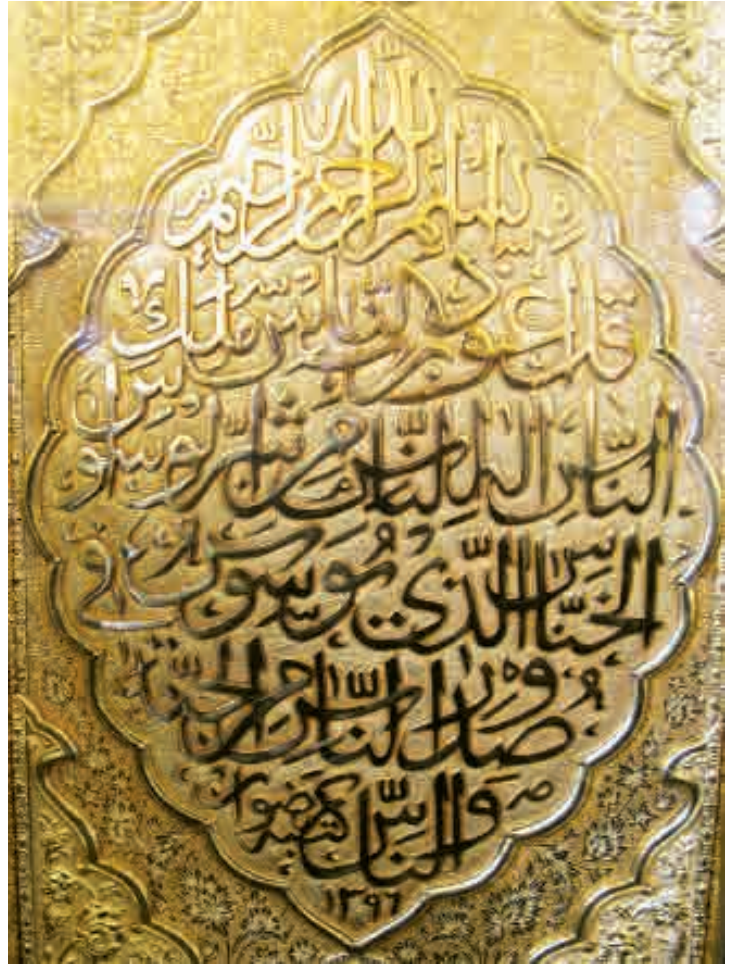 بسم الله الرحمن الرحيم
قل اعوذ برب الناس ملك
الناس اله الناس من شر الوسواس
الخناس الذي يوسوس في
صدور الناس من الجنة
والناس
١٣٩٦